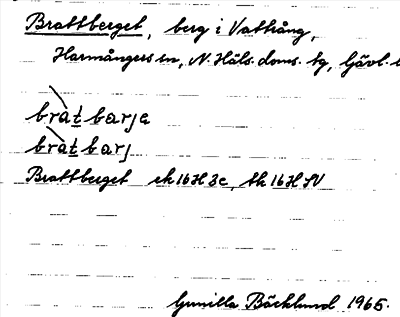 Brattberget, berg i Vattrång,
Harmångers sn, N. Häls. doms. tg, Gävl.
bratbarja
bratbarj
Brattberget ek 16H 3c, tk 16H SV
Gunilla Bäcklund 1965.